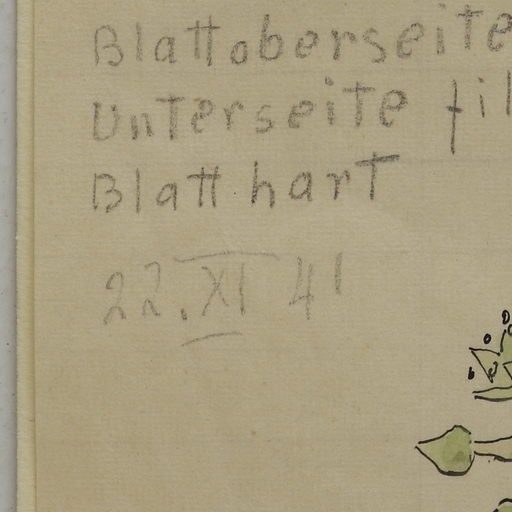 Blattoberseite
Unterseite fil
Blatt hart
22. XI 41